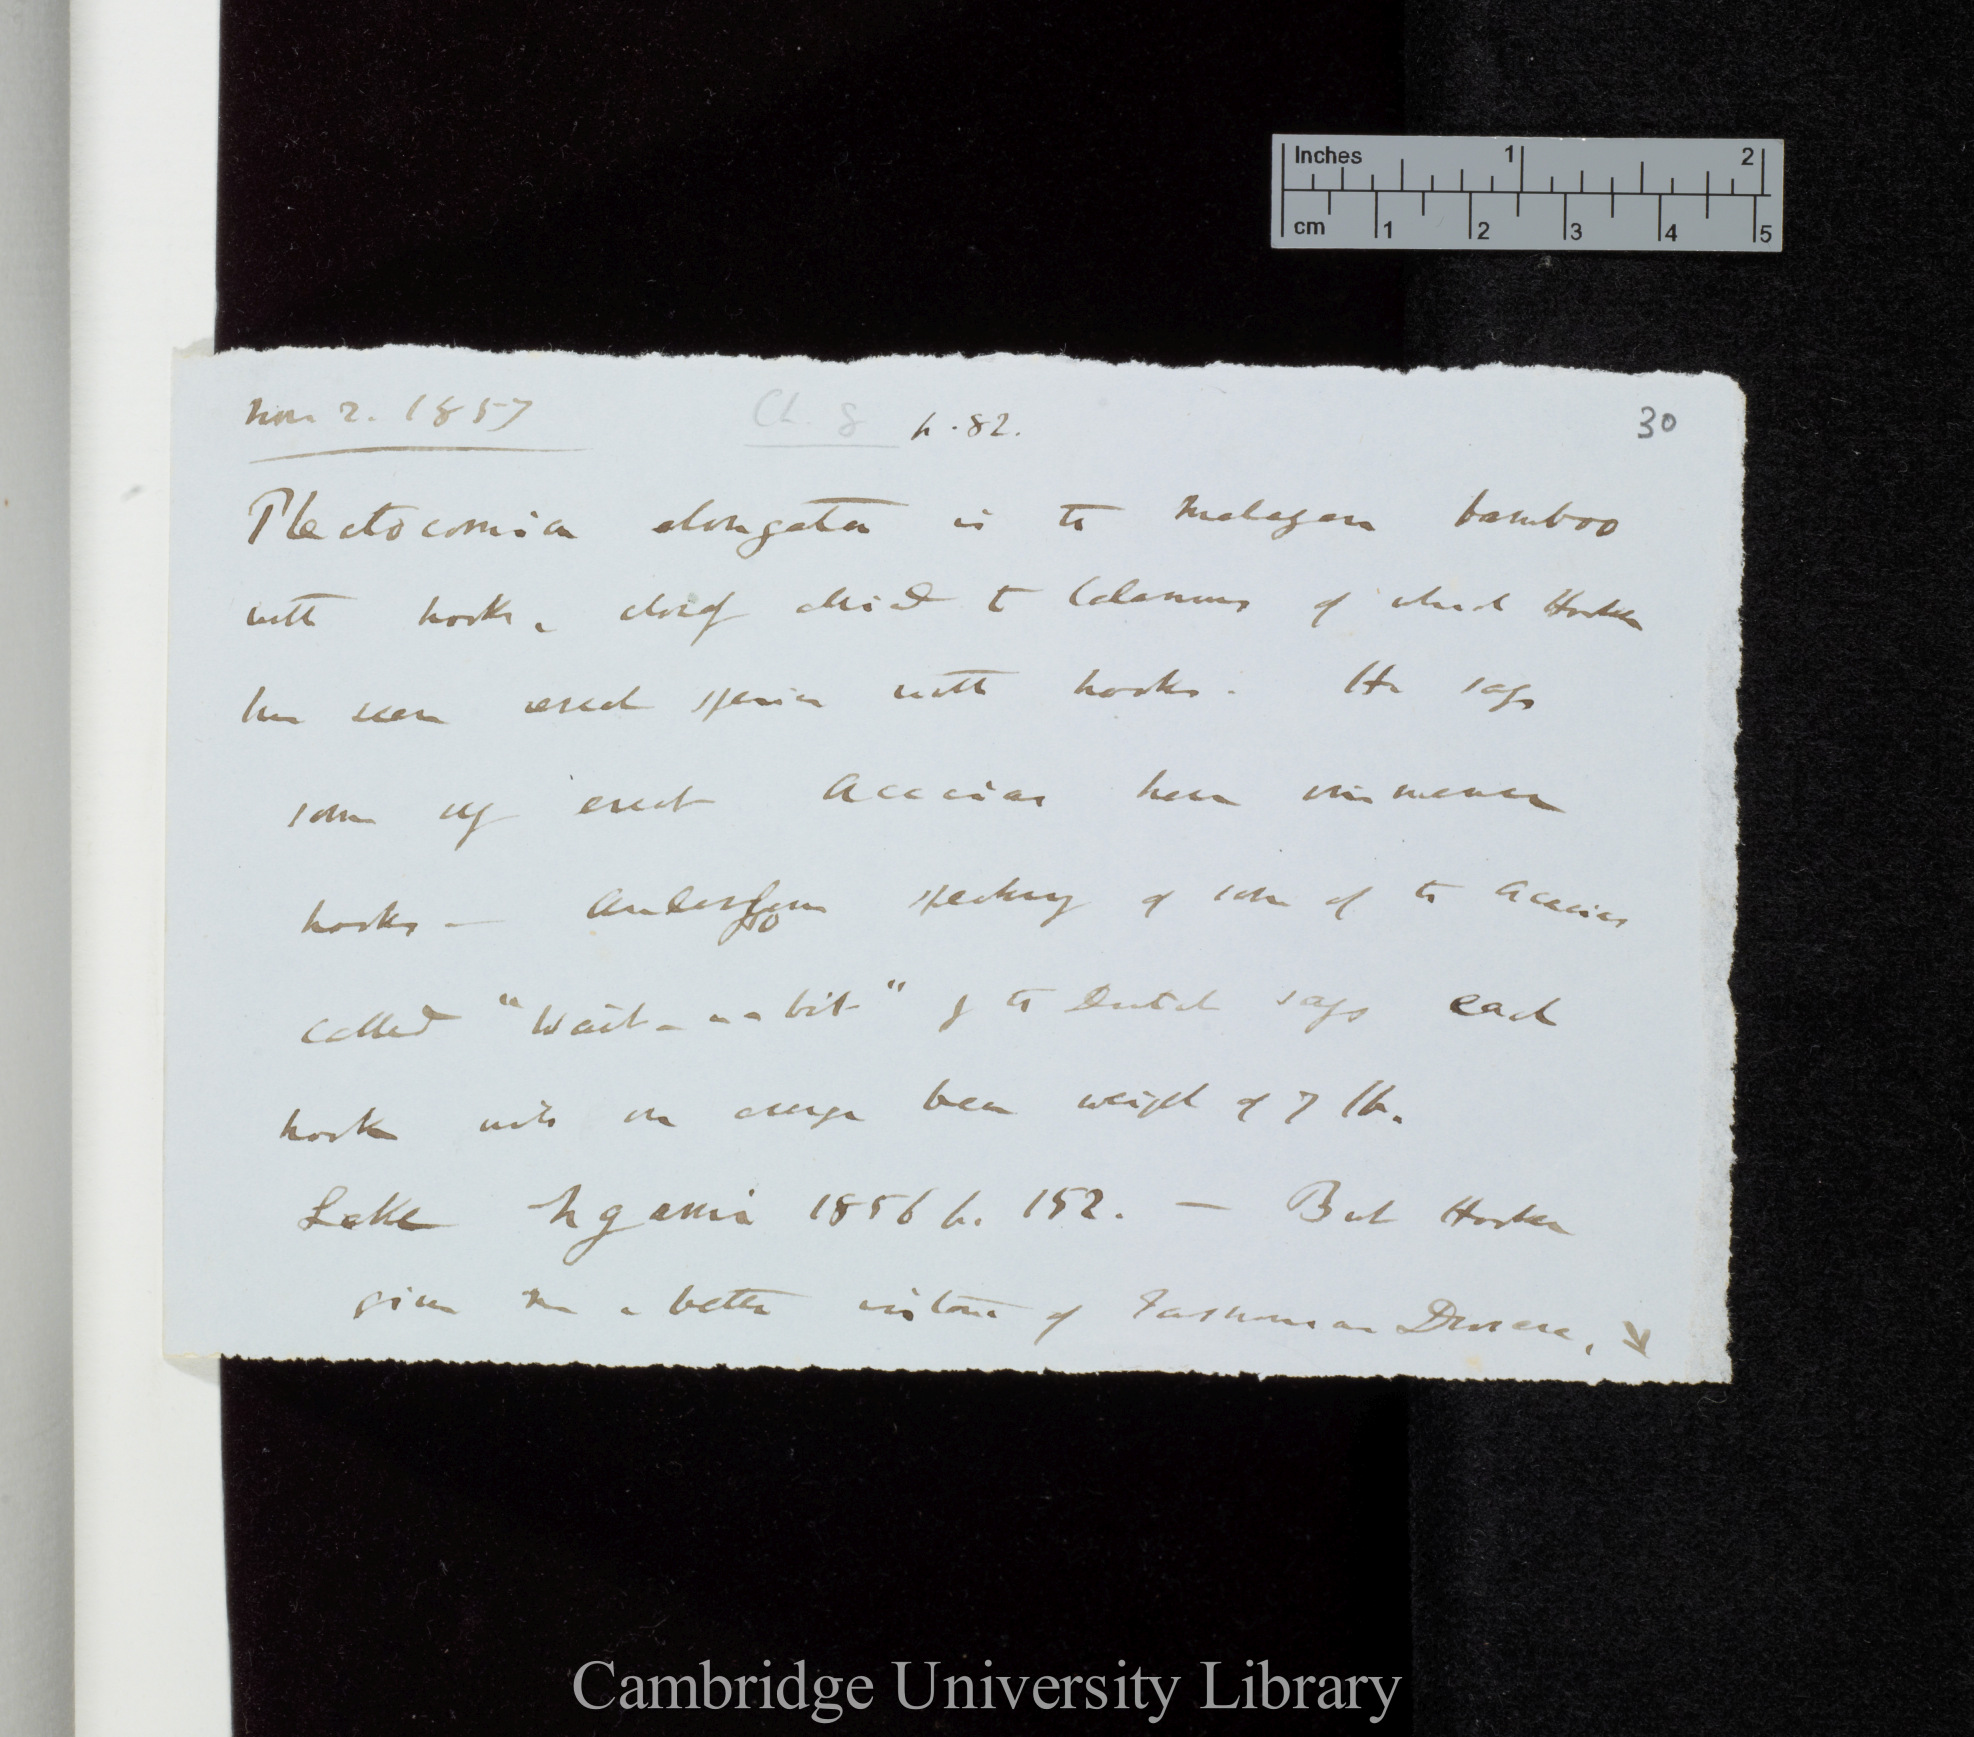 Inches 1 2
cm 1 2 3 4 5
Nov 2. 1857 Ch. 8 p. 82. 30
Plectocomia elongata is the Malayan bamboo
with hooks, closely allied to Calamus of which Hooker
has seen erect species with hooks. He says
some erect Acacias have immense
hooks — Andersson speaking of some of the Acacias
called "Wait-a-bit" of the Dutch says each
hook will on average bear weight of 7 lb.
Lake Ngami 1856 p. 152. — But Hooker
gives me a better instance of Tasmanian
Cambridge University Library